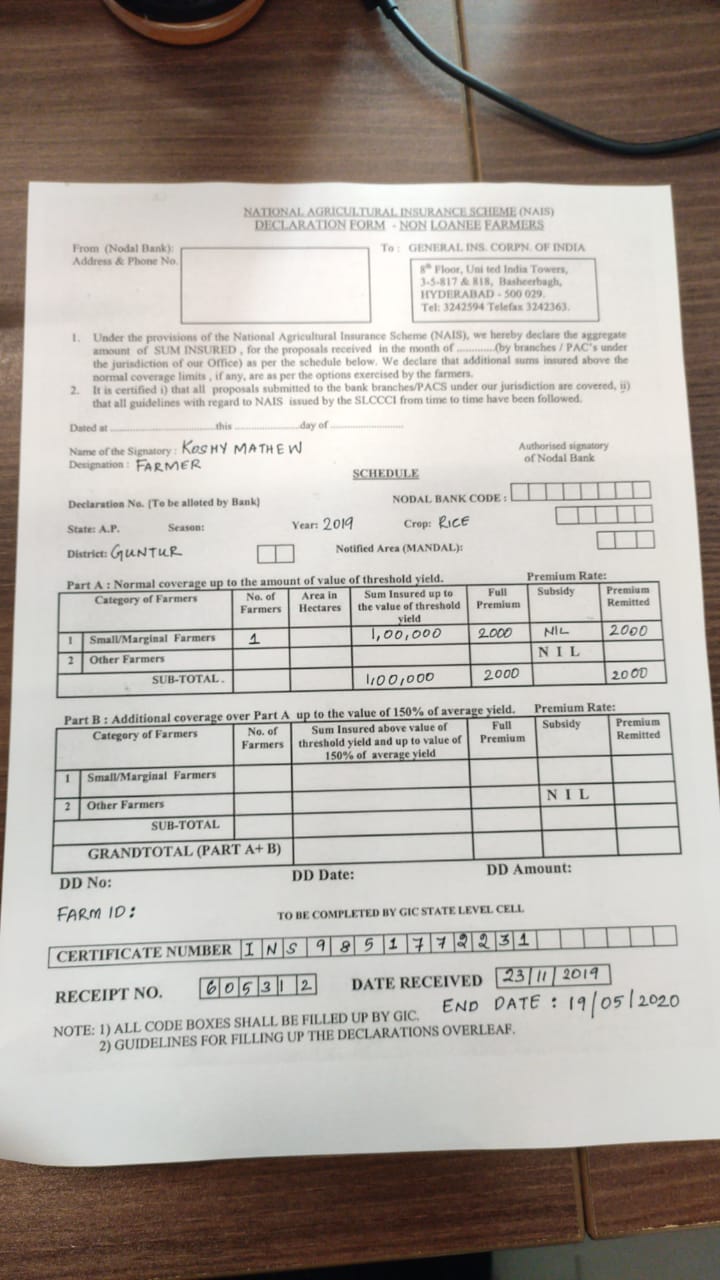 NATIONAL AGRICULTURAL INSURANCE SCHEME (NAIS)
DECLARATION FORM - NON LOANEE FARMERS
From (Nodal Bank):
Address & Phone No.
To : GENERAL INS. CORPN. OF INDIA
8th Floor, Uni ted India Towers,
3-5-817 & 818, Basheerbagh,
HYDERABAD - 500 029.
Tel: 3242594 Telefax 3242363.
1. Under the provisions of the National Agricultural Insurance Scheme (NAIS), we hereby declare the aggregate
amount of SUM INSURED , for the proposals received in the month of ............(by branches / PAC's under
the jurisdiction of our Office) as per the schedule below. We declare that additional sums insured above the
normal coverage limits , if any, are as per the options exercised by the farmers.
2. It is certified i) that all proposals submitted to the bank branches/PACS under our jurisdiction are covered, ii)
that all guidelines with regard to NAIS issued by the SLCCCI from time to time have been followed.
Dated at ..............................this ....................day of ......................
Name of the Signatory : KOSHY MATHEW
Designation : FARMER
Authorised signatory
of Nodal Bank
SCHEDULE
Declaration No. (To be alloted by Bank)
NODAL BANK CODE :
State: A.P. Season: Year: 2019 Crop: RICE
District: GUNTUR Notified Area (MANDAL):
Part A : Normal coverage up to the amount of value of threshold yield. Premium Rate:
Category of Farmers
No. of
Farmers
Area in
Hectares
Sum Insured up to
the value of threshold
yield
Full
Premium
Subsidy
Premium
Remitted
1 Small/Marginal Farmers 1 1,00,000 2000 NIL 2000
2 Other Farmers N I L
SUB-TOTAL . 1,00,000 2000 2000
Part B : Additional coverage over Part A up to the value of 150% of average yield. Premium Rate:
Category of Farmers
No. of
Farmers
Sum Insured above value of
threshold yield and up to value of
150% of average yield
Full
Premium
Subsidy
Premium
Remitted
1 Small/Marginal Farmers
2 Other Farmers N I L
SUB-TOTAL
GRANDTOTAL (PART A+ B)
DD No: DD Date: DD Amount:
FARM ID:
TO BE COMPLETED BY GIC STATE LEVEL CELL
CERTIFICATE NUMBER INS9851772231
RECEIPT NO. 605312 DATE RECEIVED 23/11/2019
END DATE : 19/05/2020
NOTE: 1) ALL CODE BOXES SHALL BE FILLED UP BY GIC.
2) GUIDELINES FOR FILLING UP THE DECLARATIONS OVERLEAF.